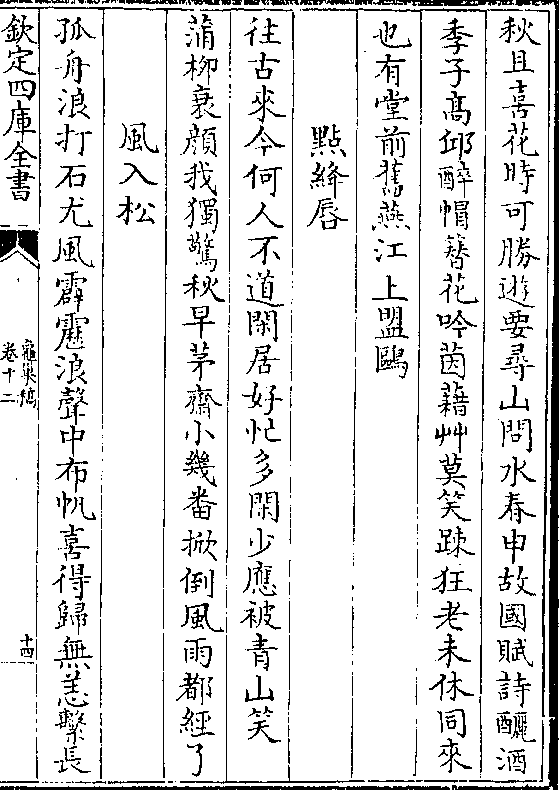 秋且喜花時可勝遊要尋山問水春申故國賦詩釃酒
季子髙邱醉帽簪花吟茵藉艸莫笑踈狂老未休同來
也有堂前舊燕江上盟鷗
點絳唇
往古來今何人不道閑居好忙多閑少應被青山笑
蒲柳衰顔我獨驚秋早茅齋小幾番掀倒風雨都經了
風入松
孤舟浪打石尤風霹靂浪聲中布帆喜得歸無恙繫長
欽定四庫全書
龜巢稿
卷十二
十四